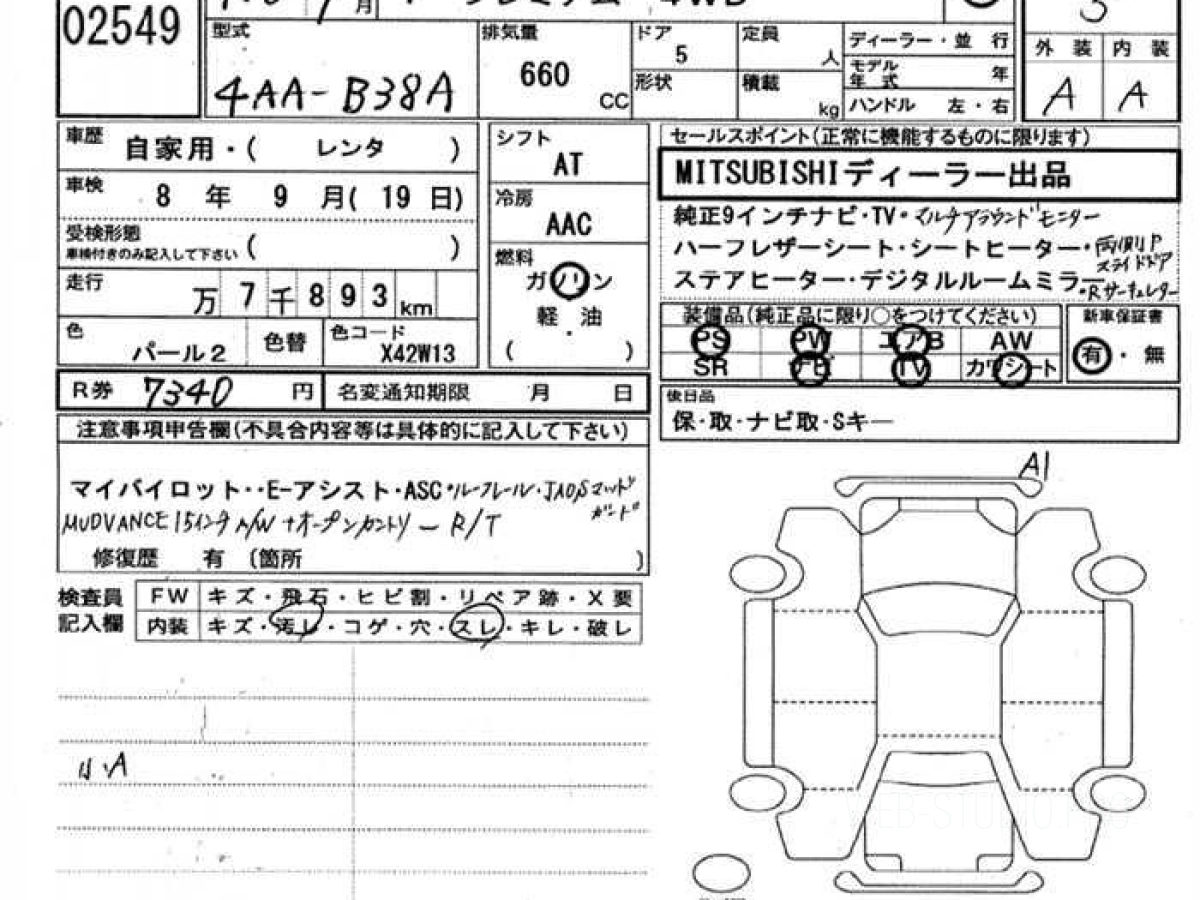 02549
月 4WD
型式 4AA-B38A
排気量 660 CC
ドア 5
形状
定員 人
積載 kg
ディーラー・並 行
モデル年式 年
ハンドル 左・右
外 装 内 装
A A
車歴 自家用・( レンタ )
車検 8 年 9 月( 19 日)
受検形態
車検付きのみ記入して下さい ( )
走行 万 7 千 8 9 3 km
色 パール2 色替 色コード X42W13
シフト AT
冷房 AAC
燃料 ガソリン
軽・油
( )
R券 7340 円 名変通知期限 月 日
セールスポイント(正常に機能するものに限ります)
MITSUBISHIディーラー出品
純正9インチナビ・TV・マルチアラウンドモニター
ハーフレザーシート・シートヒーター・両側Pスライドドア
ステアヒーター・デジタルルームミラー・Rサーキュレター
装備品(純正品に限り○をつけてください)
PS PW エアB AW
SR ナビ TV カワシート
新車保証書
有・無
後日品
保・取・ナビ取・Sキー
注意事項申告欄(不具合内容等は具体的に記入して下さい)
マイパイロット・・E-アシスト・ASC・ルーフレール・JAOSマッドガード
MUDVANCE 15インチA/W +オープンカントリー R/T
修復歴 有 (箇所 )
検査員記入欄
FW キズ・飛石・ヒビ割・リペア跡・X要
内装 キズ・汚レ・コゲ・穴・スレ・キレ・破レ
A1